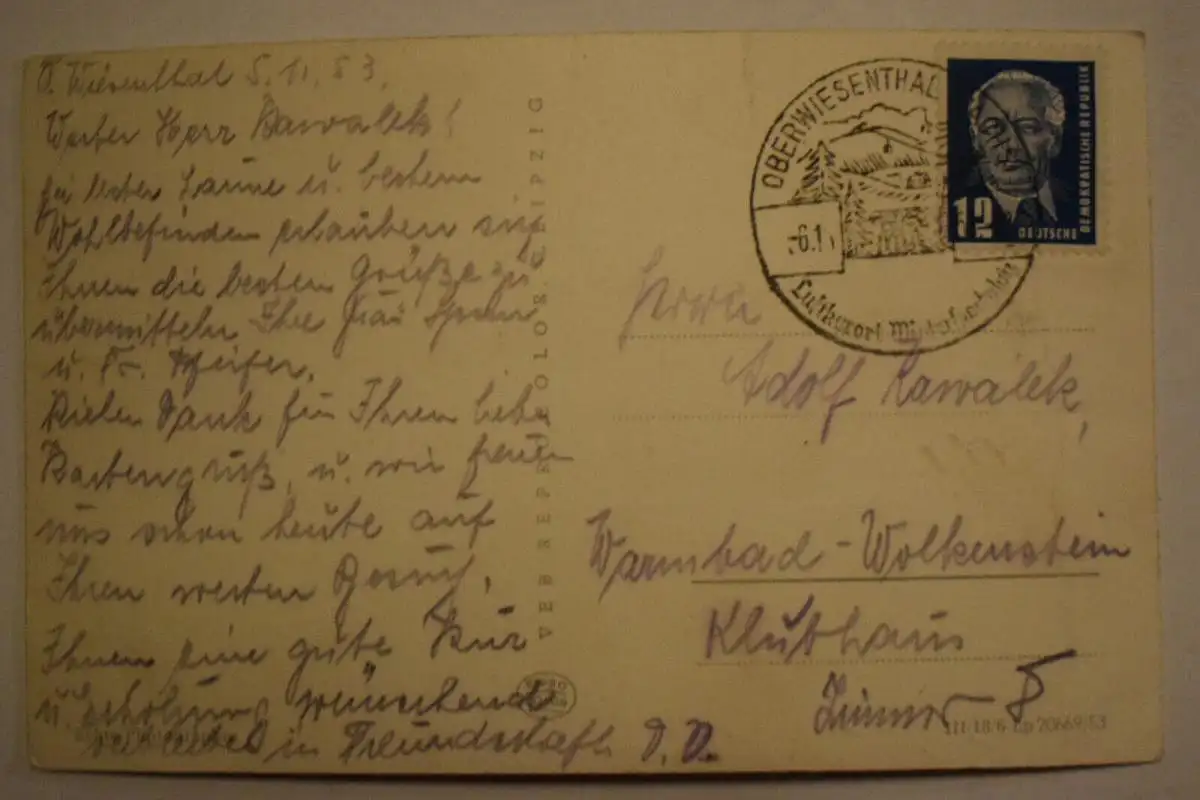 O. Wiesenthal 5.11.53.
Werter Herr Kawalek!
In bester Laune u. bestem
Wohlbefinden erlauben sich
Ihnen die besten Grüße zu
übermitteln Ihre Frau
u. Fr. Pfeifer.
Vielen Dank für Ihren lieben
Kartengruß, u. wir freuen
uns schon heute auf
Ihren werten Besuch,
Ihnen eine gute Kur
u. Erholung wünschend
in Freundschaft D. O.
VEB REPROCOLOR LEIPZIG
OBERWIESENTHAL
-6.1
Luftkurort Wintersportplatz
12
DEUTSCHE
DEMOKRATISCHE REPUBLIK
Herrn
Adolf Kawalek,
Warmbad-Wolkenstein
Kluthaus
Zimmer 8
III-18/6 20669/53